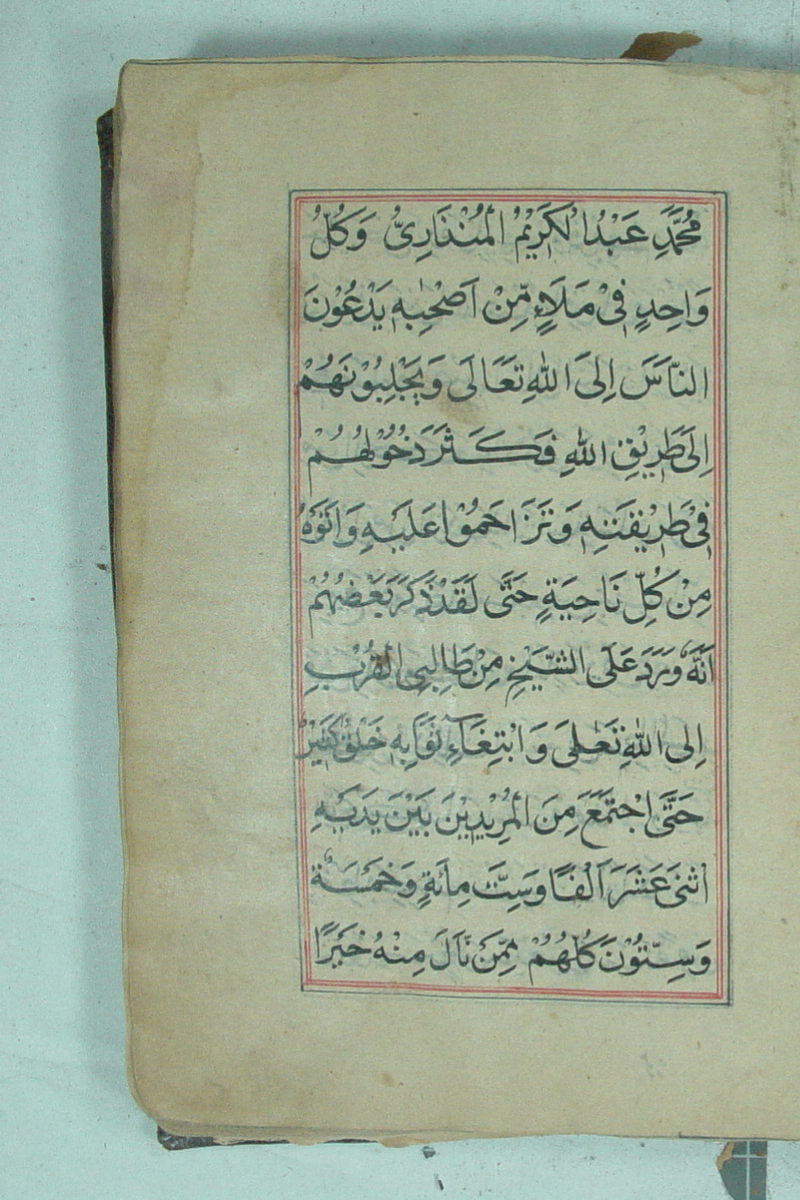 مُحَمَّدِ عَبْدُ الْكَرِيْمْ الْمُنْذَارِىُّ وَكُلُّ
وَاحِدٍ فِىْ مَلَاءٍ مِّنْ اَصْحٰبِهٖ يَدْعُوْنَ
النَّاسَ اِلَى اللهِ تَعَالَى وَيَجْلِبُوْنَهُمْ
اِلَى طَرِيْقِ اللهِ فَكَثَرَ دُخُوْلُهُمْ
فِىْ طَرِيْقَتِهٖ وَتَزَاحَمُوْا عَلَيْهِ وَاَتَوْهُ
مِنْ كُلِّ نَاحِيَةٍ حَتّٰى لَقَدْ ذَكَرَ بَعْضُهُمْ
اَنَّهٗ وَرَدَ عَلَى الشَّيْخِ مِنْ طَالِبِى الْقُرْبِ
اِلى اللهِ تَعٰلىَ وَابْتِغَآءِ ثَوَابِهٖ خَلْقٌ كَثِيْرٌ
حَتّٰى اجْتَمَعَ مِنَ الْمُرِيْدِيْنَ بَيْنَ يَدَيْهِ
اثْنَى عَشَرَ اَلْفًا وَسِتَّ مِائَةٍ وَخَمْسَةٌ
وَسِتُّوْنَ كُلُّهُمْ مِمَّنْ نَّالَ مِنْهُ خَيْرًا